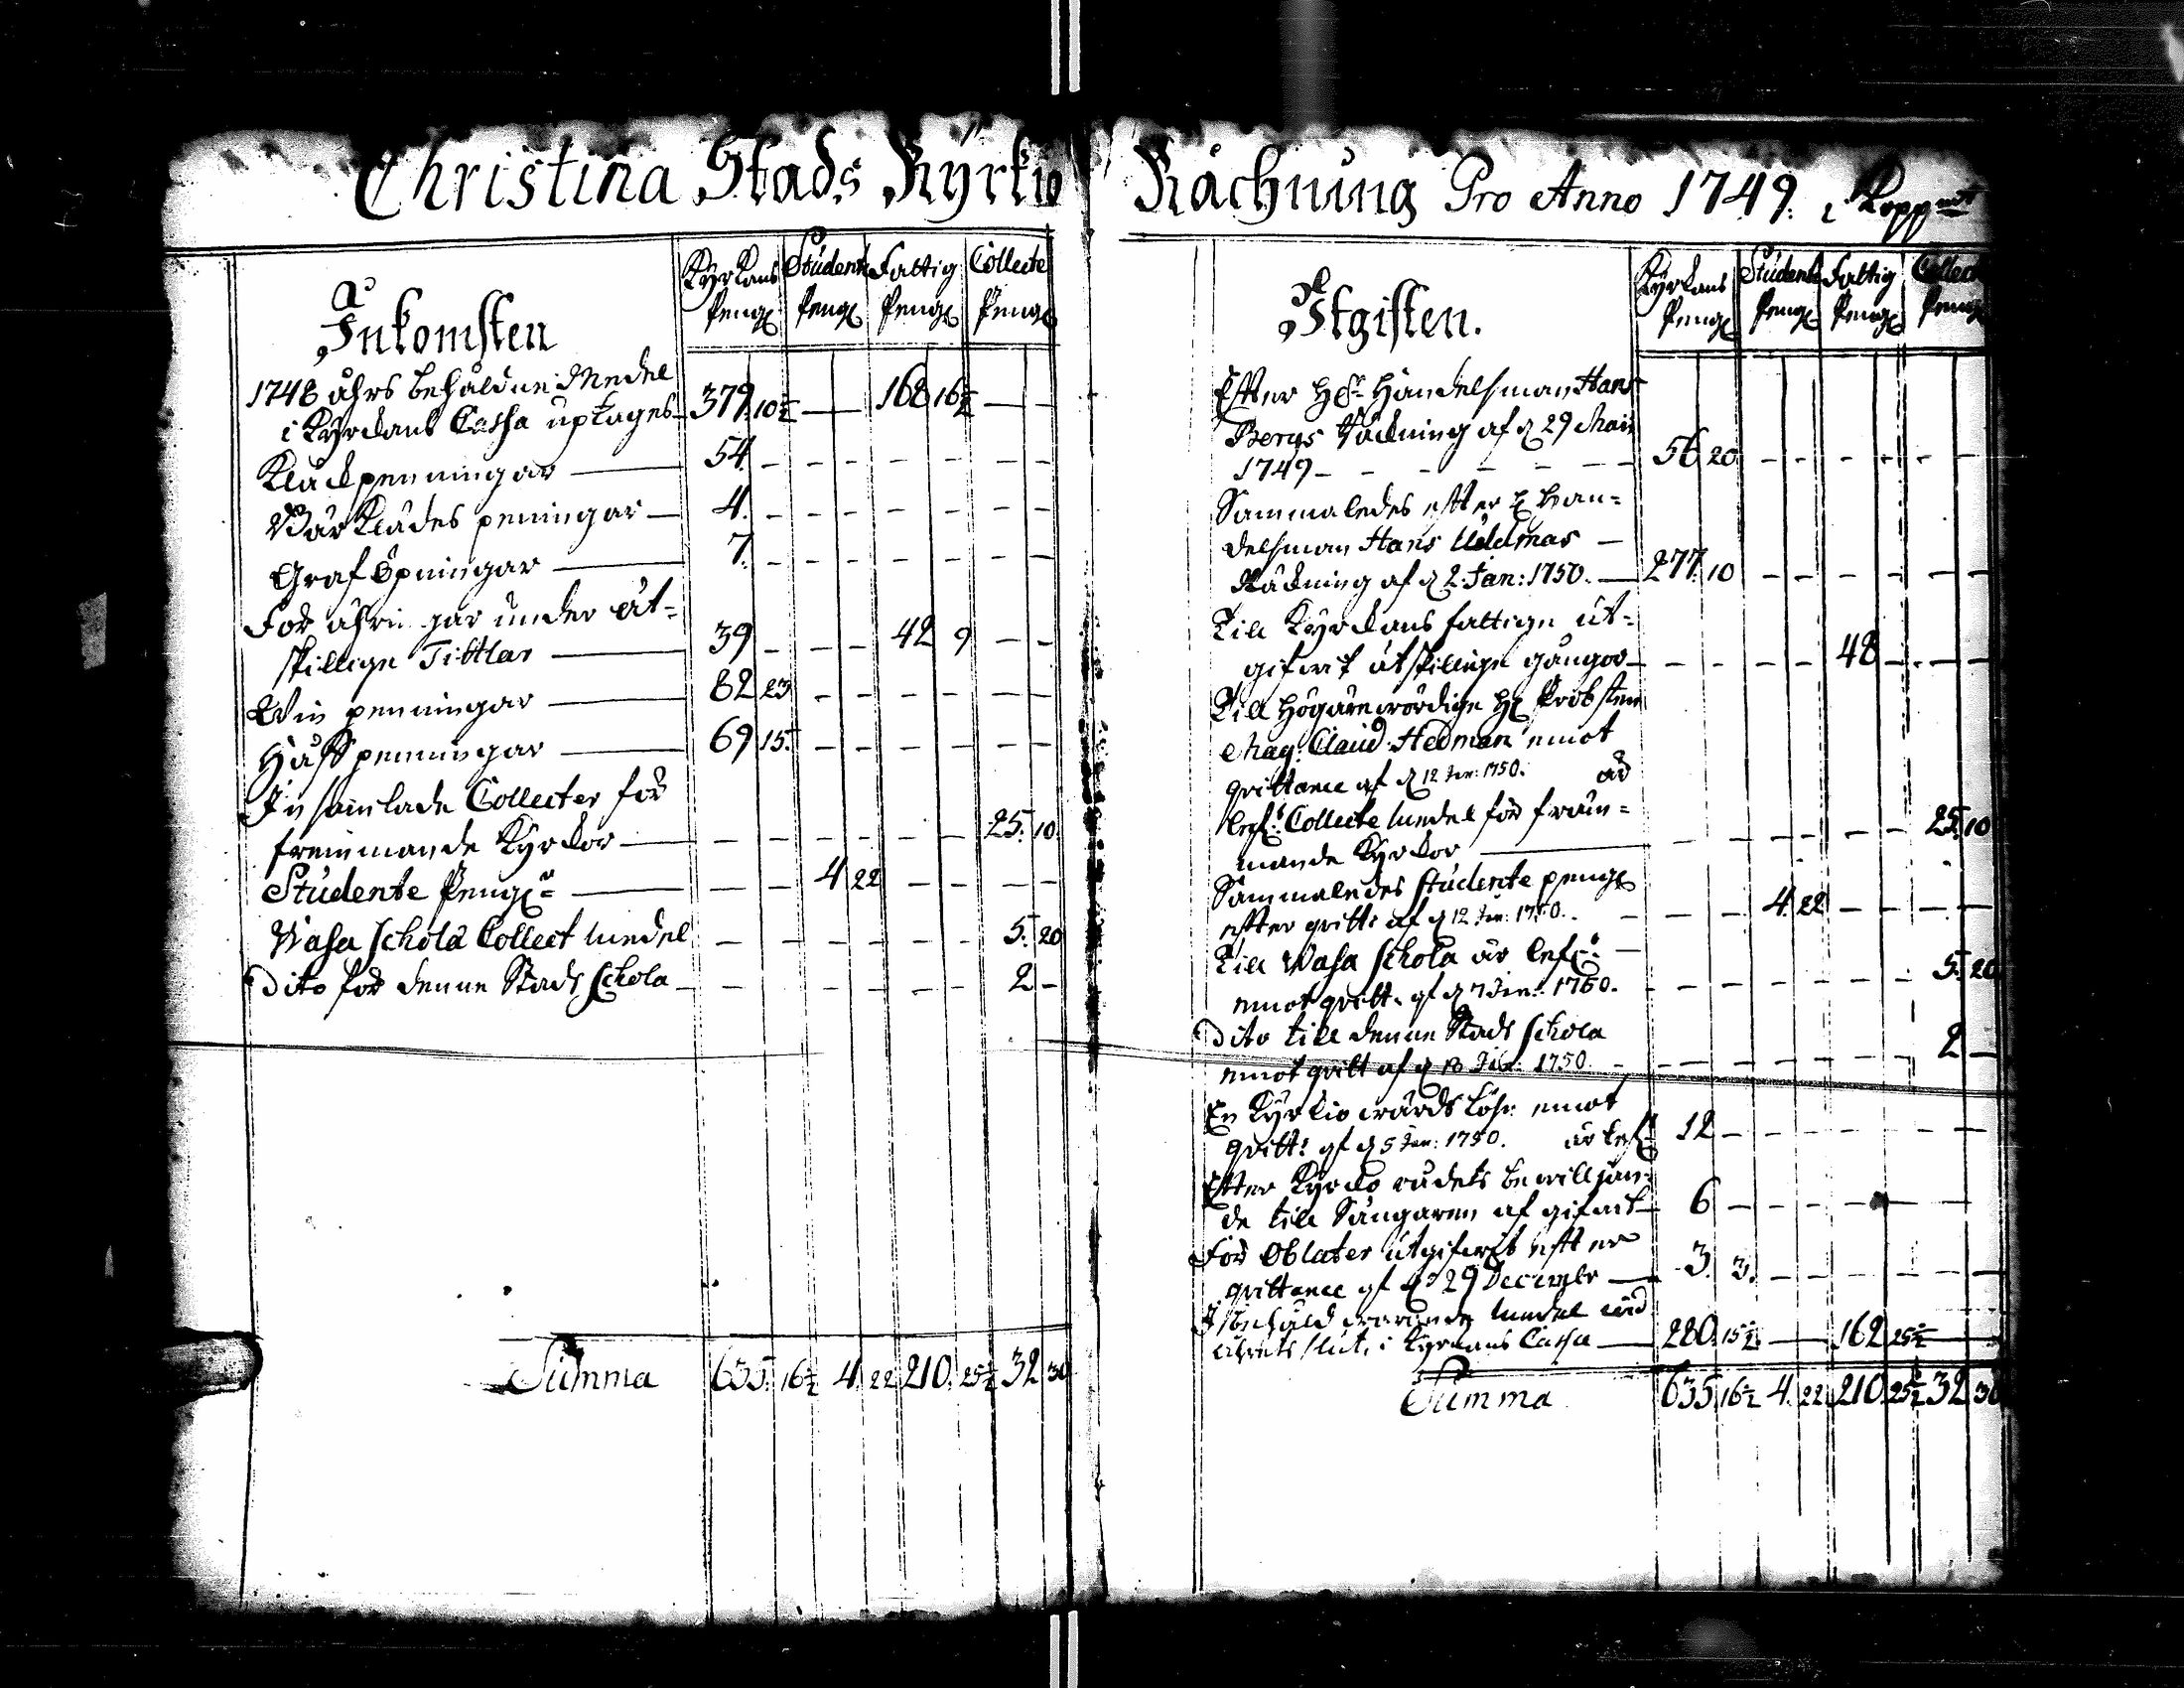 Christina Stads Kyrkio Rächnung Pro Anno 1749. i Koppmt
Inkomsten
Kyrkans Peng: Studente Peng: Fattig Peng: Collecte Peng:
1748 åhrs behåldne Medel
i Kyrkans Cassa uptages 379. 10½ — 168 16½ — —
Kläckpenningar — 54. — — — — — — —
Bårklädes peningar — 4. — — — — — — —
Graf öpningar — 7. — — — — — — —
Föräringar under åt-
skillige Tittlar — 39 — — — 42 9 — —
Win penningar — 82 23 — — — — — —
Håfpenningar — 69 15. — — — — — —
Insamlade Collecter för
fremmande Kyrkor — — — — — — — 25. 10.
Studente Peng:r — — — 4 22 — — — —
Wasa Schola Collect medel — — — — — — 5. 20
Dito för denne Stads Schola — — — — — — 2 —
Summa 635. 16½ 4. 22 210. 25½ 32 30
Utgiften.
Kyrkans Peng: Studente Peng: Fattig Peng: Collect Peng:
Efter Hr Handelsman Hans
Bergs Räkning af d 29 Maii
1749 — 56 20 — — — — — —
Sammaledes efter E Han-
delsman Hans
Räkning af d 2. Jan: 1750. — 277. 10 — — — — — —
Till Kyrkans fattige ut-
gifwit åtskillige gångor — — — — 48 — — —
Till Högärewördige H: Probsten
Mag: Claud: Hedman emot
qvittance af d 12 Jan: 1750. är
lef:t Collecte medel för främ-
mande Kyrkor — — — — — 25. 10
Sammaledes Studente peng:
efter qvitt: af d 12 Jan: 1750. — — — 4. 22 — — — —
Till Wasa Schola är lef:t —
emot qvitt. af d 7 Jan: 1750. — — — — — — 5. 20
Dito till denne Stads Schola
emot qvitt af d 18 1750. — — — — — — 2 —
En Kyrkiowärds Löhn emot
qvitt: af d 5 Jan: 1750. är lef:t 12 — — — — — — —
Efter Kyrkorådets bewilljan-
de till Sångaren af gifwit — 6 — — — — — — —
För Oblater utgifwit efter
qvittance af d 29 December — 3. 3. — — — — — —
I behåld warande medel wid
åhrets slut, i Kyrkans Cassa — 280. 15½ — 162 25½ — —
Summa 635. 16½ 4. 22. 210 25½ 32 30